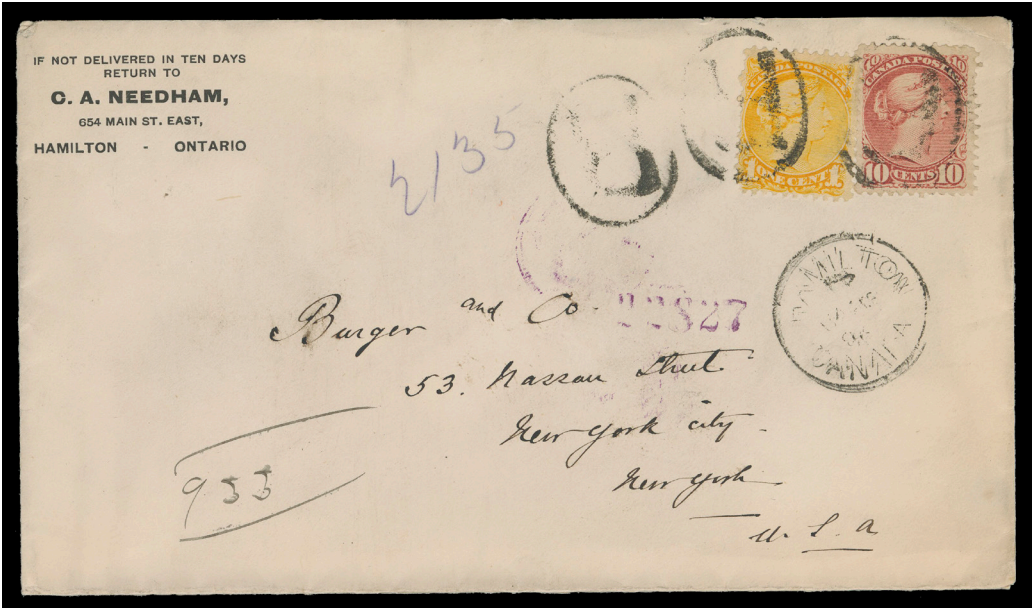 IF NOT DELIVERED IN TEN DAYS
RETURN TO
C. A. NEEDHAM,
654 MAIN ST. EAST,
HAMILTON - ONTARIO
2135
R
CANADA POSTAGE
ONE CENT
CANADA POSTAGE
10 10
10 CENTS 10
HAMILTON
CANADA
827
Burger and Co.
53. Nassau Street.
New York city
New York
U. S. A
955